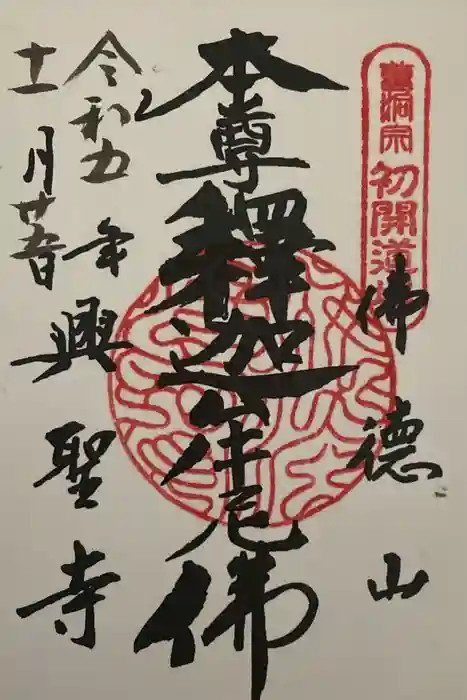 曹洞宗 初開道場
佛德山
本尊釋迦牟尼佛
令和五年興聖寺
十一月廿五日